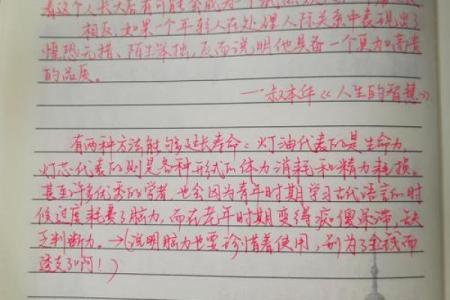 着这个人长大后有可能会成为一个
相反,如果一个年轻人在处理人际关系中表现出了
惶恐无措、陌生笨拙,反而说明他具备一个更为高贵
的品质。
——叔本华《人生的智慧》
有两种方法能够延长寿命:灯油代表的是生命力,
灯芯代表的则是各种形式的体力消耗和精力耗损。
甚至许多优秀的学者,也会因为青年时期学习古代语言的时
候过度耗费了脑力,而在老年时期变得痴傻呆滞,缺
乏判断力。→(说明脑力也要珍惜着使用,别为了金钱而
透支了啊!)